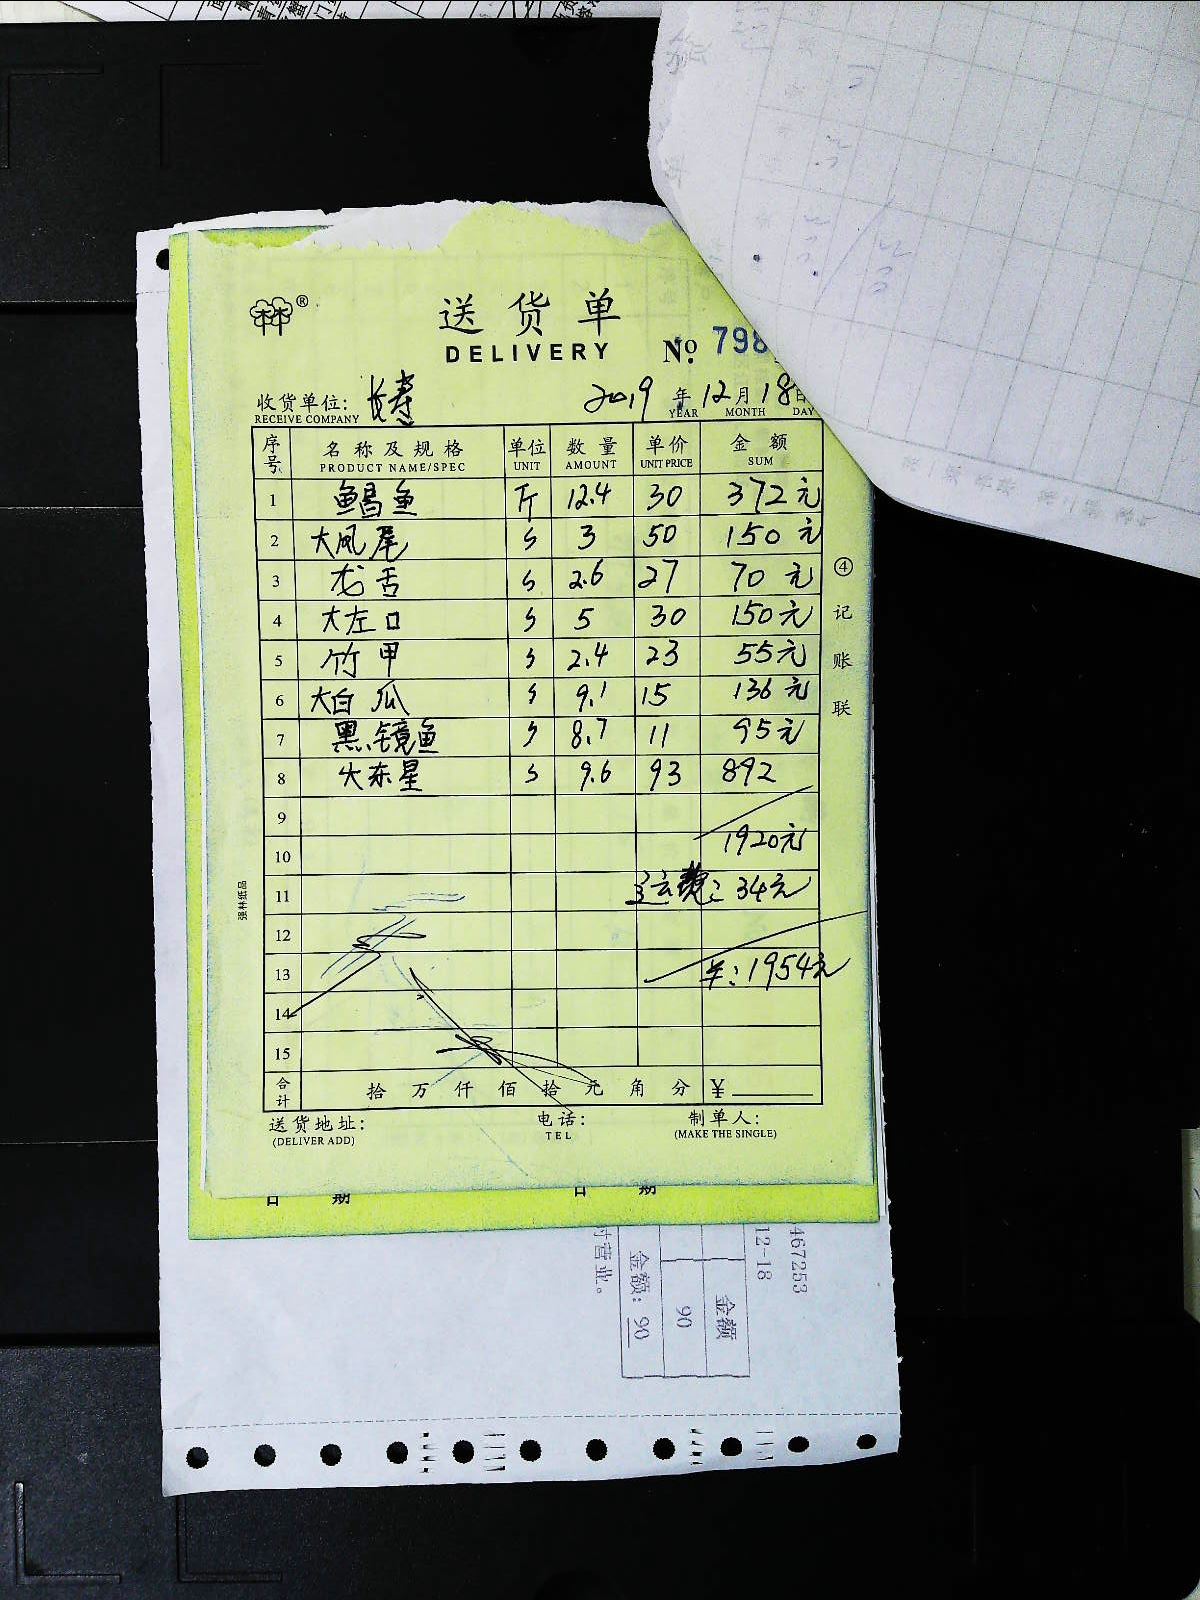 送货单
DELIVERY
№ 798
收货单位: 长寿 2019 年 12 月 18 日
RECEIVE COMPANY YEAR MONTH DAY
序号 名称及规格 单位 数量 单价 金额
PRODUCT NAME/SPEC UNIT AMOUNT UNIT PRICE SUM
1 鲳鱼 斤 12.4 30 372元
2 大凤尾 5 3 50 150元
3 龙舌 5 2.6 27 70元
4 大左口 5 5 30 150元
5 竹甲 5 2.4 23 55元
6 大白瓜 5 9.1 15 136元
7 黑镜鱼 5 8.7 11 95元
8 大东星 5 9.6 93 892
9
10 1920元
11 运费: 34元
12
13 1954元
14
15
合计 拾 万 仟 佰 拾 元 角 分 ¥
送货地址: 电话: 制单人:
(DELIVER ADD) TEL (MAKE THE SINGLE)
④记账联
强林纸品
日 期 日 期
467253
12-18
金额
90
金额: 90
时营业。